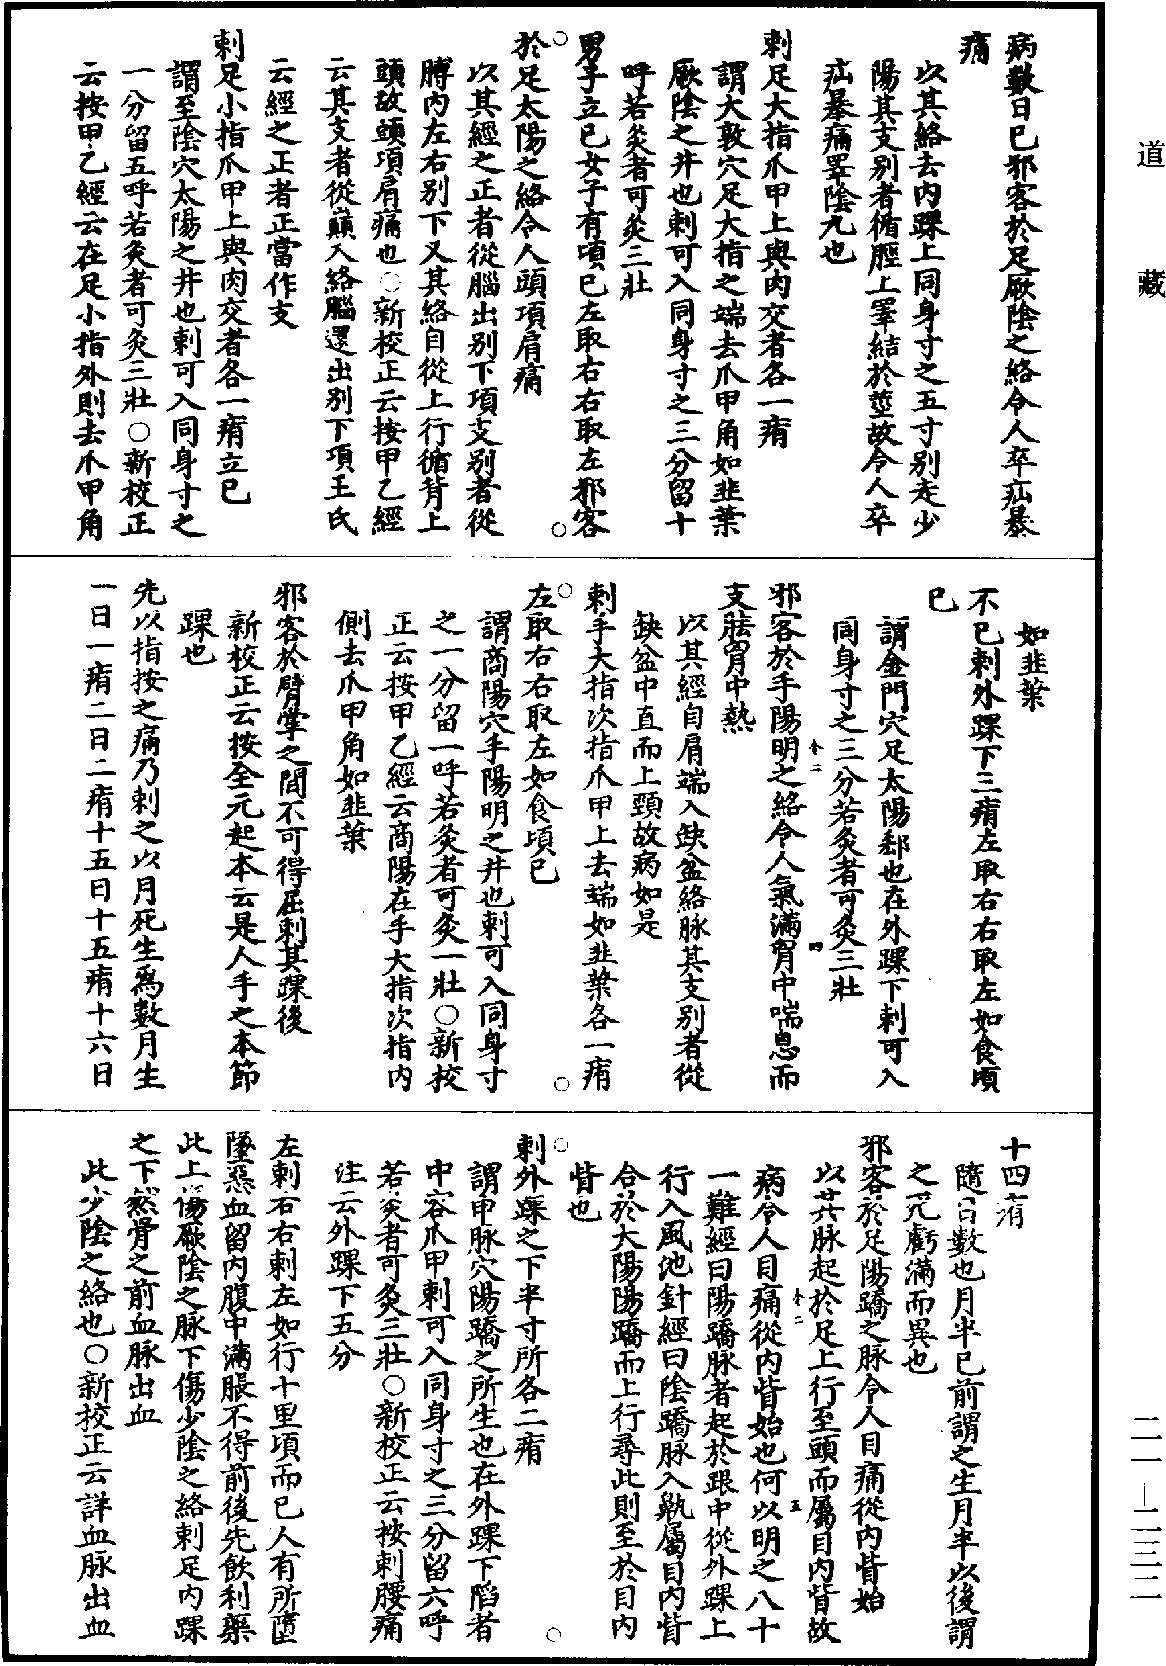 道藏
病數日已邪客於足厥陰之絡令人卒疝暴
痛
以其絡去內踝上同身寸之五寸別走少
陽其支別者循脛上睪結於莖故令人卒
疝暴痛睪陰丸也
刺足大指爪甲上與肉交者各一痏
謂大敦穴足大指之端去爪甲角如韭葉
厥陰之井也刺可入同身寸之三分留十
呼若灸者可灸三壯
男子立已女子有頃已左取右右取左邪客
於足太陽之絡令人頭項肩痛
以其經之正者從腦出別下項支別者從
膊內左右別下又其絡自從上行循背上
頭故頭項肩痛也○新校正云按甲乙經
云其支者從巔入絡腦還出別下項王氏
云經之正者正當作支
刺足小指爪甲上與肉交者各一痏立已
謂至陰穴太陽之井也刺可入同身寸之
一分留五呼若灸者可灸三壯○新校正
云按甲乙經云在足小指外則去爪甲角
如韭葉
不已刺外踝下三痏左取右右取左如食頃
已
謂金門穴足太陽郄也在外踝下刺可入
同身寸之三分若灸者可灸三壯
邪客於手陽明之絡令人氣滿胷中喘息而
支胠胷中熱
以其經自肩端入缺盆絡脉其支別者從
缺盆中直而上頸故病如是
刺手大指次指爪甲上去端如韭葉各一痏
左取右右取左如食頃已
謂商陽穴手陽明之井也刺可入同身寸
之一分留一呼若灸者可灸一壯○新校
正云按甲乙經云商陽在手大指次指內
側去爪甲角如韭葉
邪客於臂掌之間不可得屈刺其踝後
新校正云按全元起本云是人手之本節
踝也
先以指按之痛乃刺之以月死生爲數月生
一日一痏二日二痏十五日十五痏十六日
十四痏
隨日數也月半已前謂之生月半以後謂
之死虧滿而異也
邪客於足陽蹻之脉令人目痛從內眥始
以其脉起於足上行至頭而屬目內眥故
病令人目痛從內眥始也何以明之八十
一難經曰陽蹻脉者起於跟中從外踝上
行入風池針經曰陰蹻脉入鼽屬目內眥
合於太陽陽蹻而上行尋此則至於目內
眥也
刺外踝之下半寸所各二痏
謂申脉穴陽蹻之所生也在外踝下陷者
中容爪甲刺可入同身寸之三分留六呼
若灸者可灸三壯○新校正云按刺腰痛
注云外踝下五分
左刺右右刺左如行十里頃而已人有所墮
墜惡血留內腹中滿脹不得前後先飲利藥
此上傷厥陰之脉下傷少陰之絡刺足內踝
之下然骨之前血脉出血
此少陰之絡也○新校正云詳血脉出血
二一—二三二